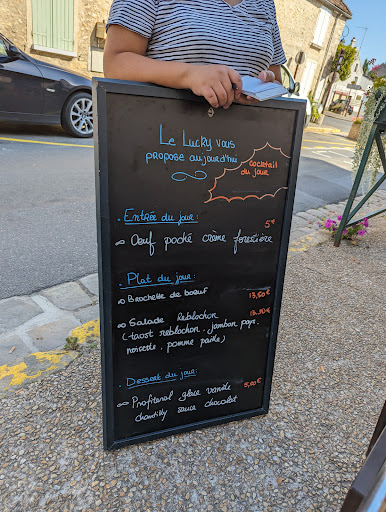 Le Lucky vous
propose aujourd'hui
Cocktail
du jour
. Entrée du jour:
5€
∞ Oeuf poché crème forestière
. Plat du jour:
∞ Brochette de bœuf 13,50€
∞ Salade Reblochon 13,50€
(toast reblochon, jambon pays,
noisette, pomme paille)
. Dessert du jour:
∞ Profiterol glace vanille 5,00€
chantilly sauce chocolat